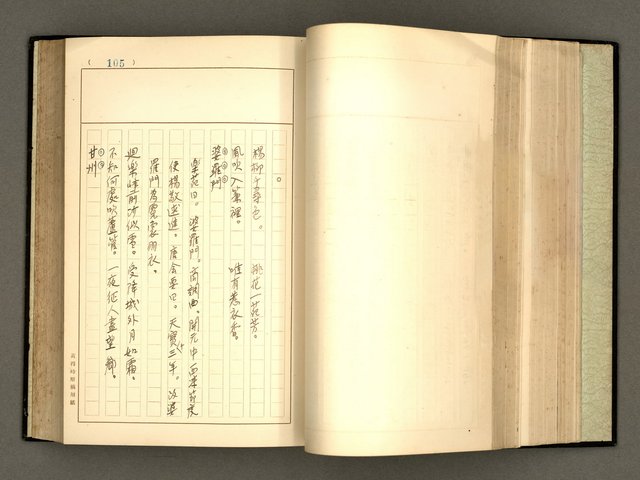 ( 105 )
楊柳千尋色。 桃花一苑芳。
風吹入簾裡。 唯有惹衣香。
婆羅門
樂苑曰。婆羅門。商調曲。開元中西凉節度
使楊敬述進。唐會要曰。天寶十三年。改婆
羅門為霓裳羽衣。
迴樂峰前沙似雪。受降城外月如霜。
不知何處吹蘆管。一夜征人盡望鄉。
甘州
黃得時原稿用紙